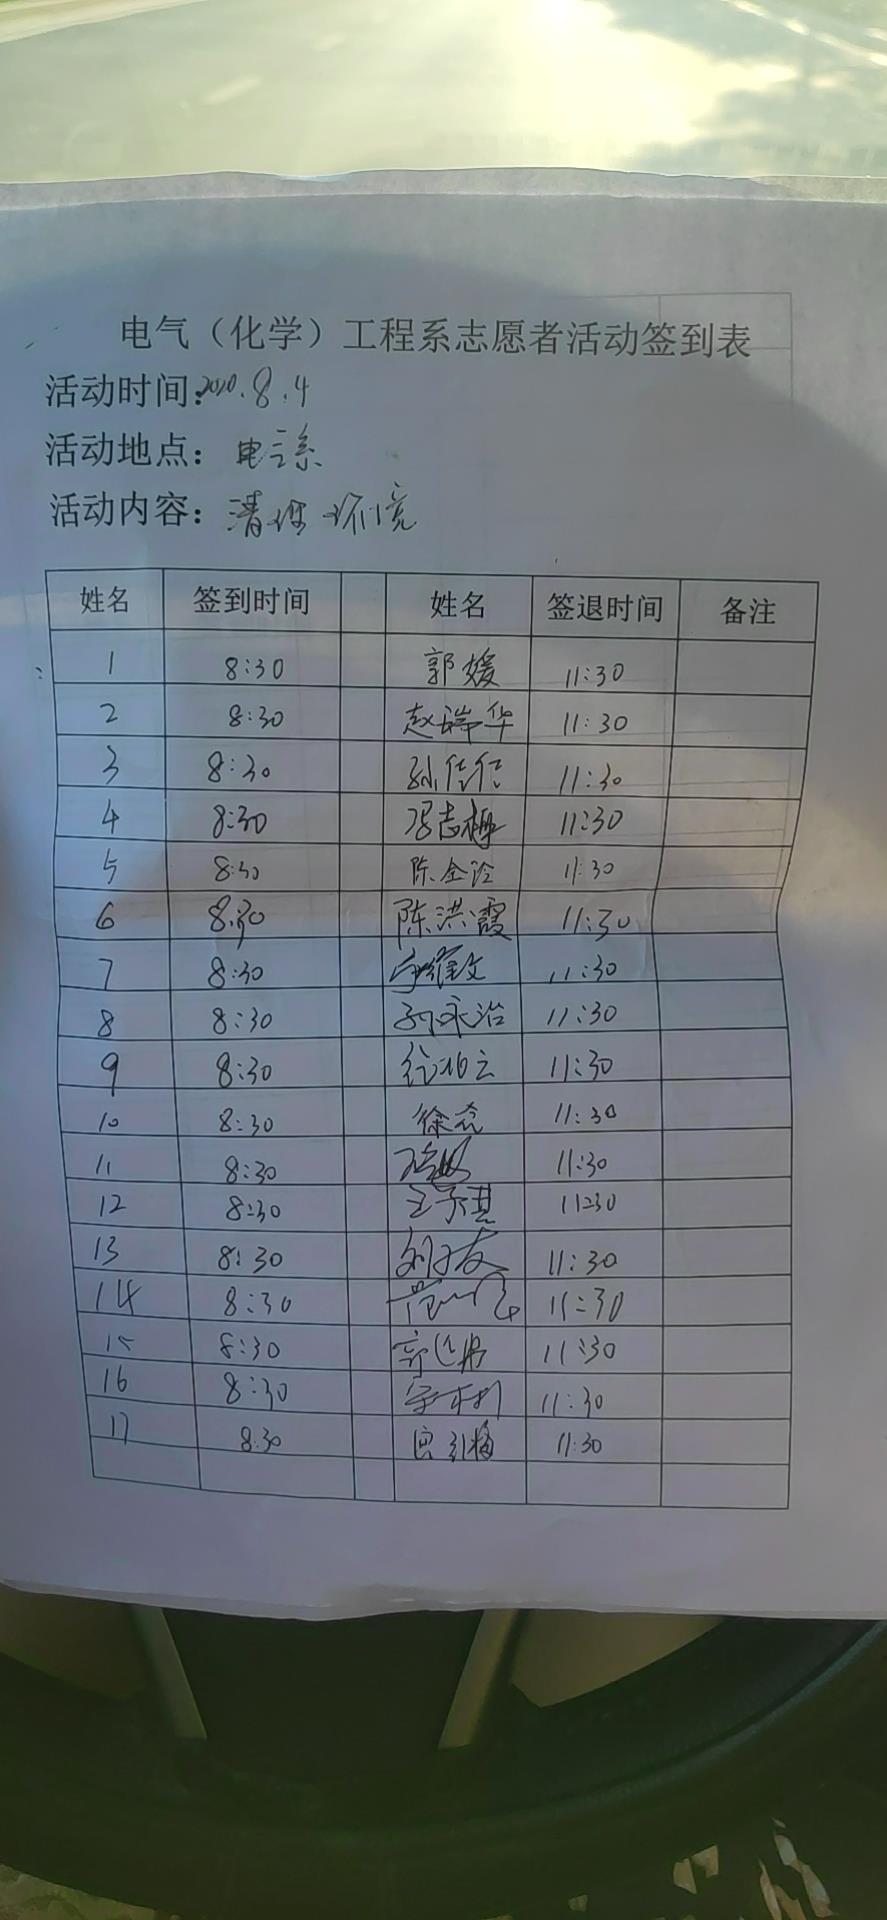 电气（化学）工程系志愿者活动签到表
活动时间：2020.8.4
活动地点：电气系
活动内容：清理环境
姓名 签到时间 姓名 签退时间 备注
1 8:30 郭媛 11:30
2 8:30 赵瑞华 11:30
3 8:30 孙倩倩 11:30
4 8:30 冯志梅 11:30
5 8:30 陈金玲 11:30
6 8:30 陈洪霞 11:30
7 8:30 11:30
8 8:30 孙永治 11:30
9 8:30 11:30
10 8:30 徐亮 11:30
11 8:30 11:30
12 8:30 王子琪 11:30
13 8:30 11:30
14 8:30 11:30
15 8:30 11:30
16 8:30 11:30
17 8:30 11:30